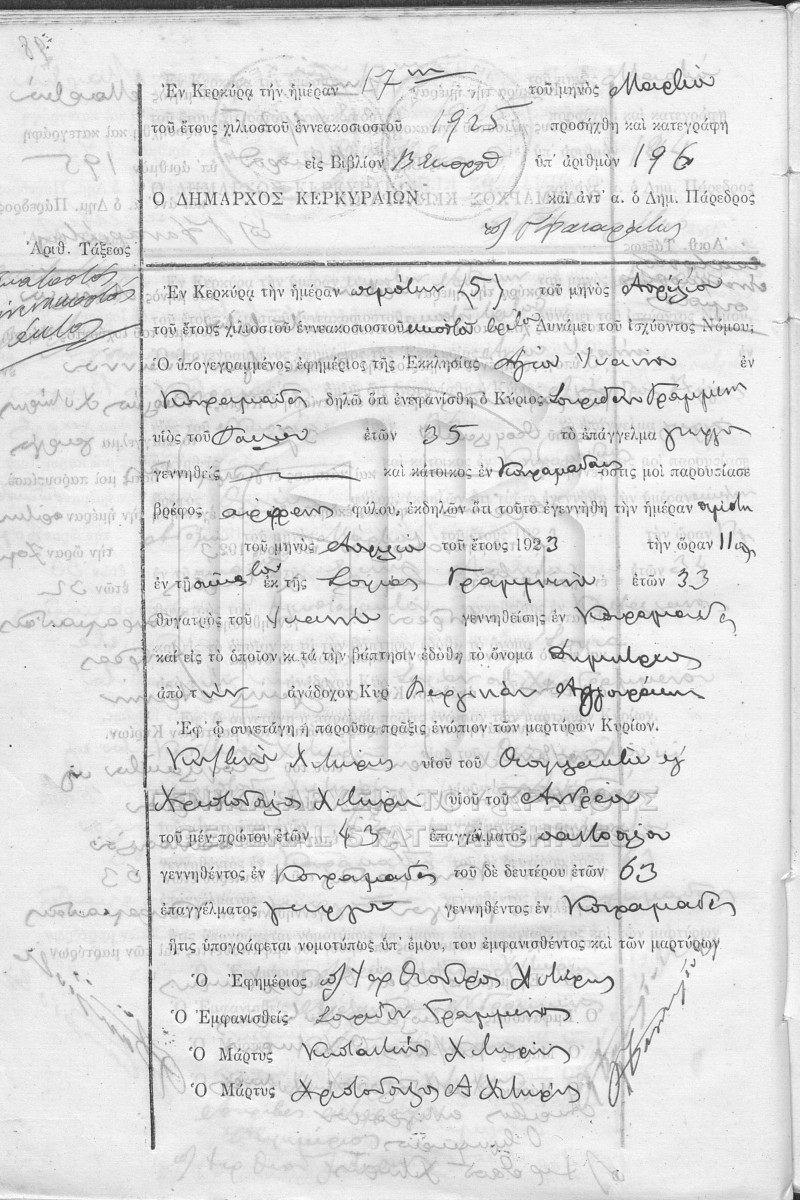 Ἐν Κερκύρᾳ τὴν ἡμέραν 17ην τοῦ μηνὸς Μαρτίου
τοῦ ἔτους χιλιοστοῦ ἐννεακοσιοστοῦ 1925 προσήχθη καὶ κατεγράφη
εἰς Βιβλίον ὑπ' ἀριθμὸν 196
Ο ΔΗΜΑΡΧΟΣ ΚΕΡΚΥΡΑΙΩΝ καὶ ἀντ' α. ὁ Δημ. Πάρεδρος
Ἀριθ. Τάξεως
Ἐν Κερκύρᾳ τὴν ἡμέραν πέμπτην (5) τοῦ μηνὸς Ἀπριλίου
τοῦ ἔτους χιλιοστοῦ ἐννεακοσιοστοῦ εἰκοστοῦ τρίτου Δυνάμει τοῦ Ἰσχύοντος Νόμου;
Ὁ ὑπογεγραμμένος ἐφημέριος τῆς Ἐκκλησίας Ἁγίου ἐν
Κουραμάδες δηλῶ ὅτι ἐνεφανίσθη ὁ Κύριος Σπυρίδων Γραμμένος
υἱὸς τοῦ ἐτῶν 35 τὸ ἐπάγγελμα γεωργὸς
γεννηθεὶς καὶ κάτοικος ἐν Κουραμάδες ὅστις μοὶ παρουσίασε
βρέφος ἄρρενος φύλου, ἐκδηλῶν ὅτι τοῦτο ἐγεννήθη τὴν ἡμέραν
τοῦ μηνὸς Ἀπριλίου τοῦ ἔτους 1923 τὴν ὥραν 11
ἐν τῇ οἰκίᾳ του ἐκ τῆς Σοφίας Γραμμένου ἐτῶν 33
θυγατρὸς τοῦ γεννηθείσης ἐν Κουραμάδες
καὶ εἰς τὸ ὁποῖον κατὰ τὴν βάπτισιν ἐδόθη τὸ ὄνομα Δημήτριος
ἀπὸ τὴν ἀνάδοχον Κυρ
Ἐφ' ᾧ συνετάγη ἡ παροῦσα πρᾶξις ἐνώπιον τῶν μαρτύρων Κυρίων.
Χυτήρης υἱοῦ τοῦ
Χριστόδουλος Χυτήρης υἱοῦ τοῦ Ἀνδρέου
τοῦ μὲν πρώτου ἐτῶν 43 ἐπαγγέλματος παντοπώλου
γεννηθέντος ἐν Κουραμάδες τοῦ δὲ δευτέρου ἐτῶν 63
ἐπαγγέλματος γεωργοῦ γεννηθέντος ἐν Κουραμάδες
ἥτις ὑπογράφεται νομοτύπως ὑπ' ἐμοῦ, του ἐμφανισθέντος καὶ τῶν μαρτύρων
Ὁ Ἐφημέριος Θεόδωρος Χυτήρης
Ὁ Ἐμφανισθεὶς Σπυρίδων Γραμμένος
Ὁ Μάρτυς Κωσταντῖνος Χυτήρης
Ὁ Μάρτυς Χριστόδουλος Α Χυτήρης